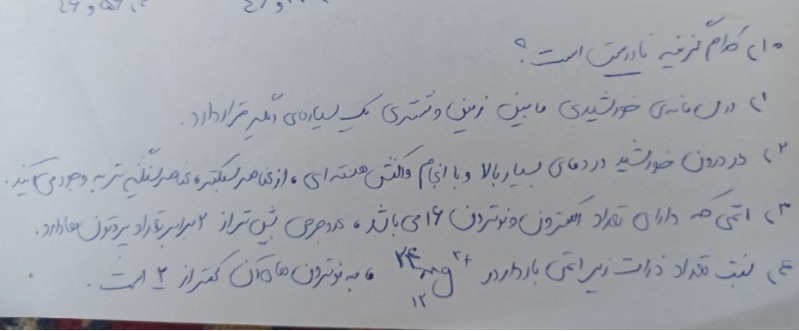 ۱۰) کدام گزینه نادرست است؟
۱) در سامانه‌ی خورشیدی مابین زمین و مشتری یک سیاره‌ی دیگر قرار دارد.
۲) در درون خورشید در دمای بسیار بالا و با انجام واکنش هسته‌ای، از عناصر سبکتر، عناصر سنگین تر به وجود می‌آیند.
۳) اتمی که دارای تعداد الکترون و نوترون ۱۶ می باشد، عدد جرمی بیش تر از ۲ برابر تعداد پروتون ها دارد.
۴) نسبت تعداد ذرات زیر اتمی باردار در ²⁴₁₂Mg²⁺، به نوترون های آن کمتر از ۲ است.